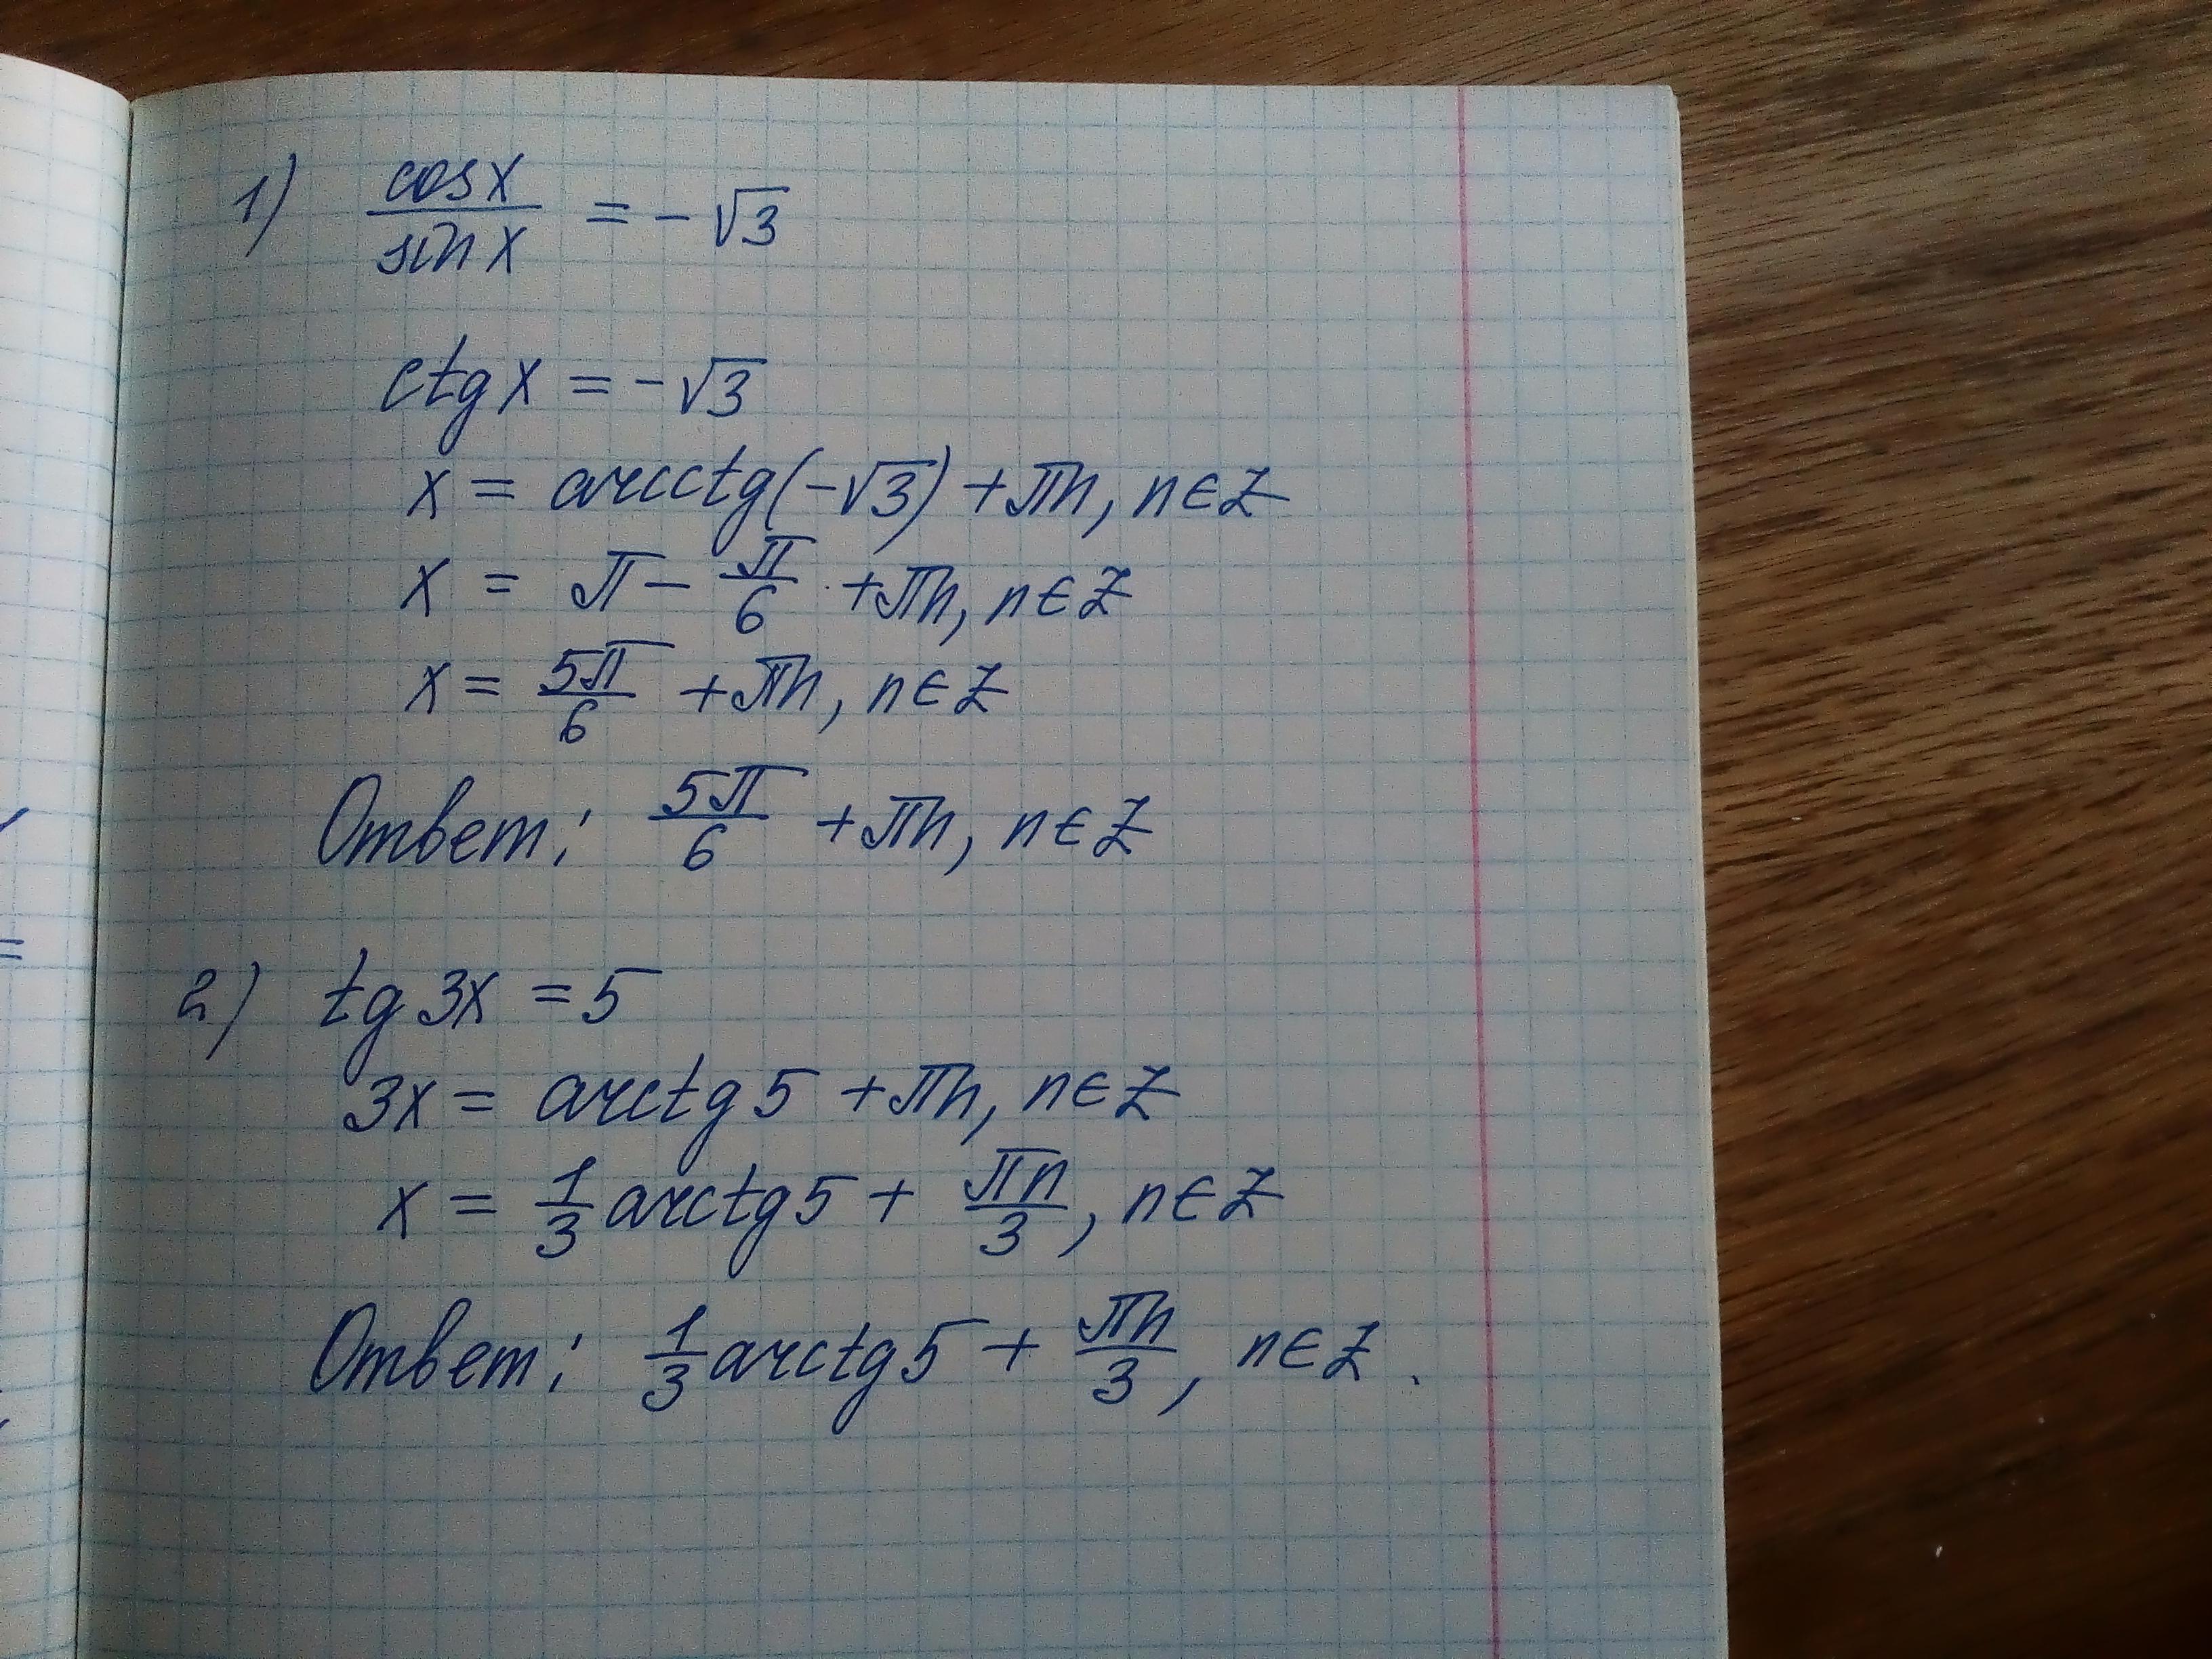 1) cos x / sin x = -√3
ctg x = -√3
x = arcctg(-√3) + πn, n∈Z
x = π - π/6 + πn, n∈Z
x = 5π/6 + πn, n∈Z
Ответ: 5π/6 + πn, n∈Z
2) tg 3x = 5
3x = arctg 5 + πn, n∈Z
x = 1/3 arctg 5 + πn/3, n∈Z
Ответ: 1/3 arctg 5 + πn/3, n∈Z.